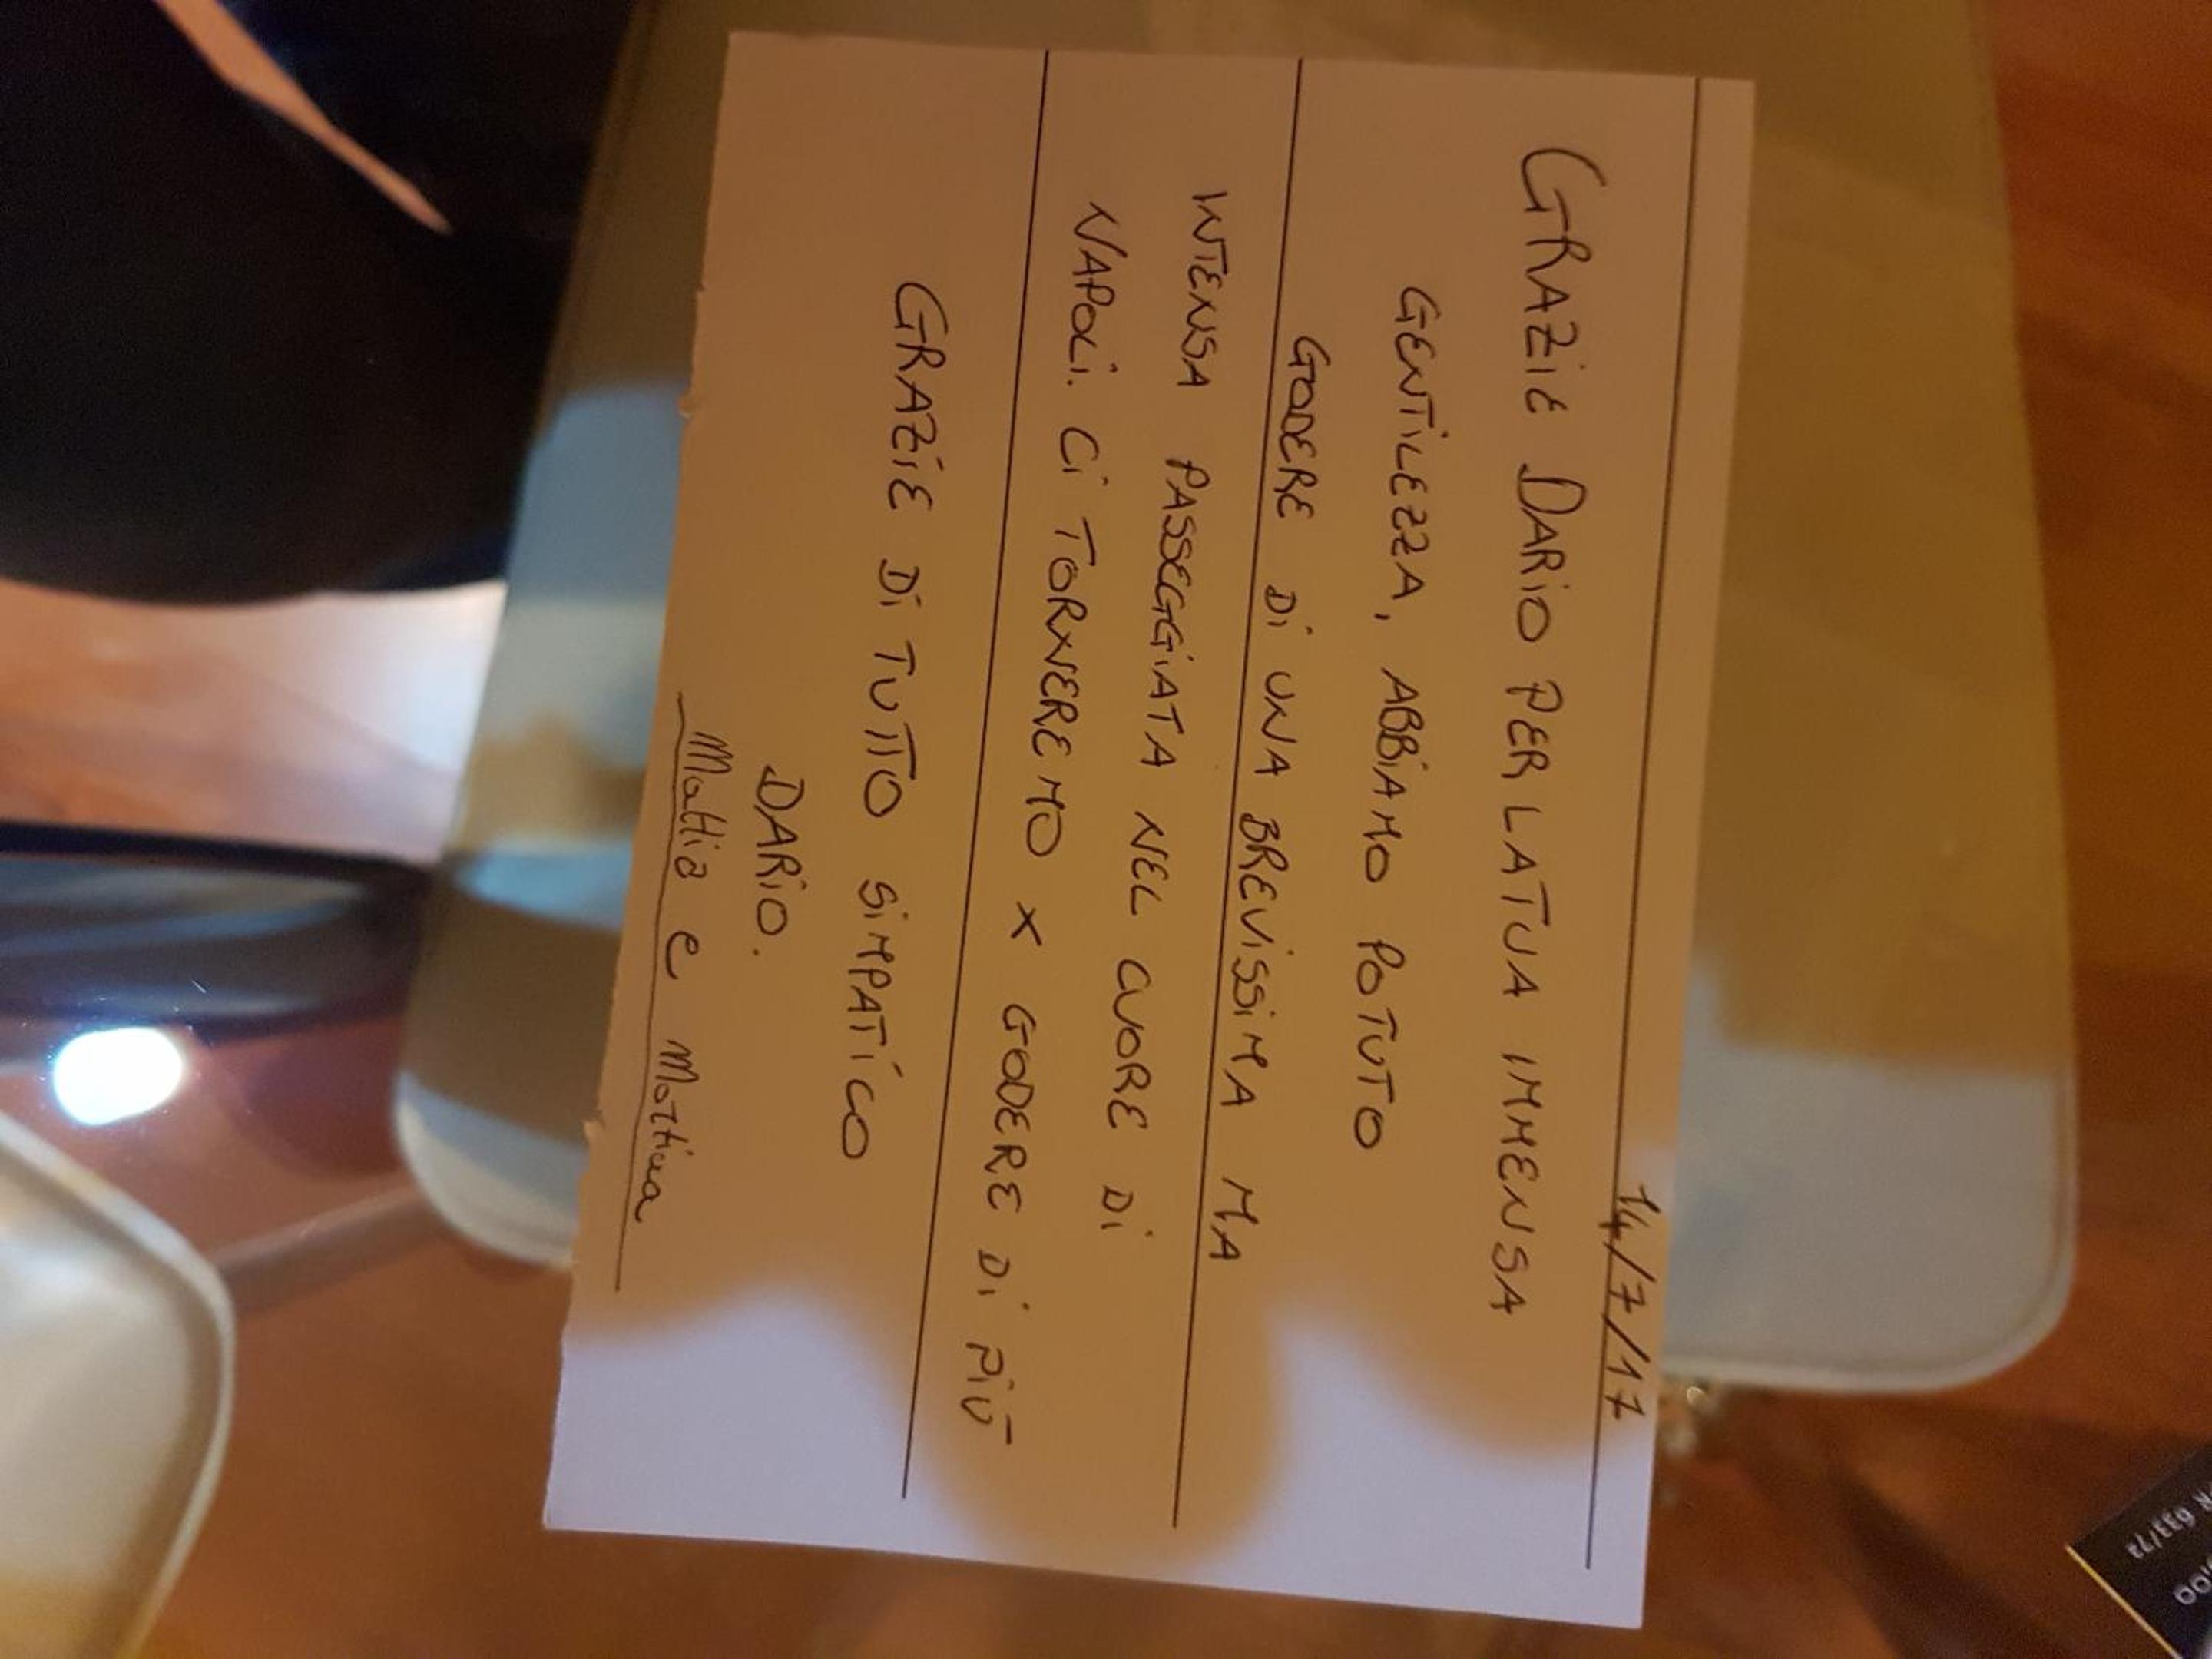 14/7/17
GRAZIE DARIO PER LA TUA IMMENSA
GENTILEZZA, ABBIAMO POTUTO
GODERE DI UNA BREVISSIMA MA
INTENSA PASSEGGIATA NEL CUORE DI
NAPOLI. CI TORNEREMO X GODERE DI PIÙ
GRAZIE DI TUTTO SIMPATICO
DARIO.
Mattia e Martina
633/72